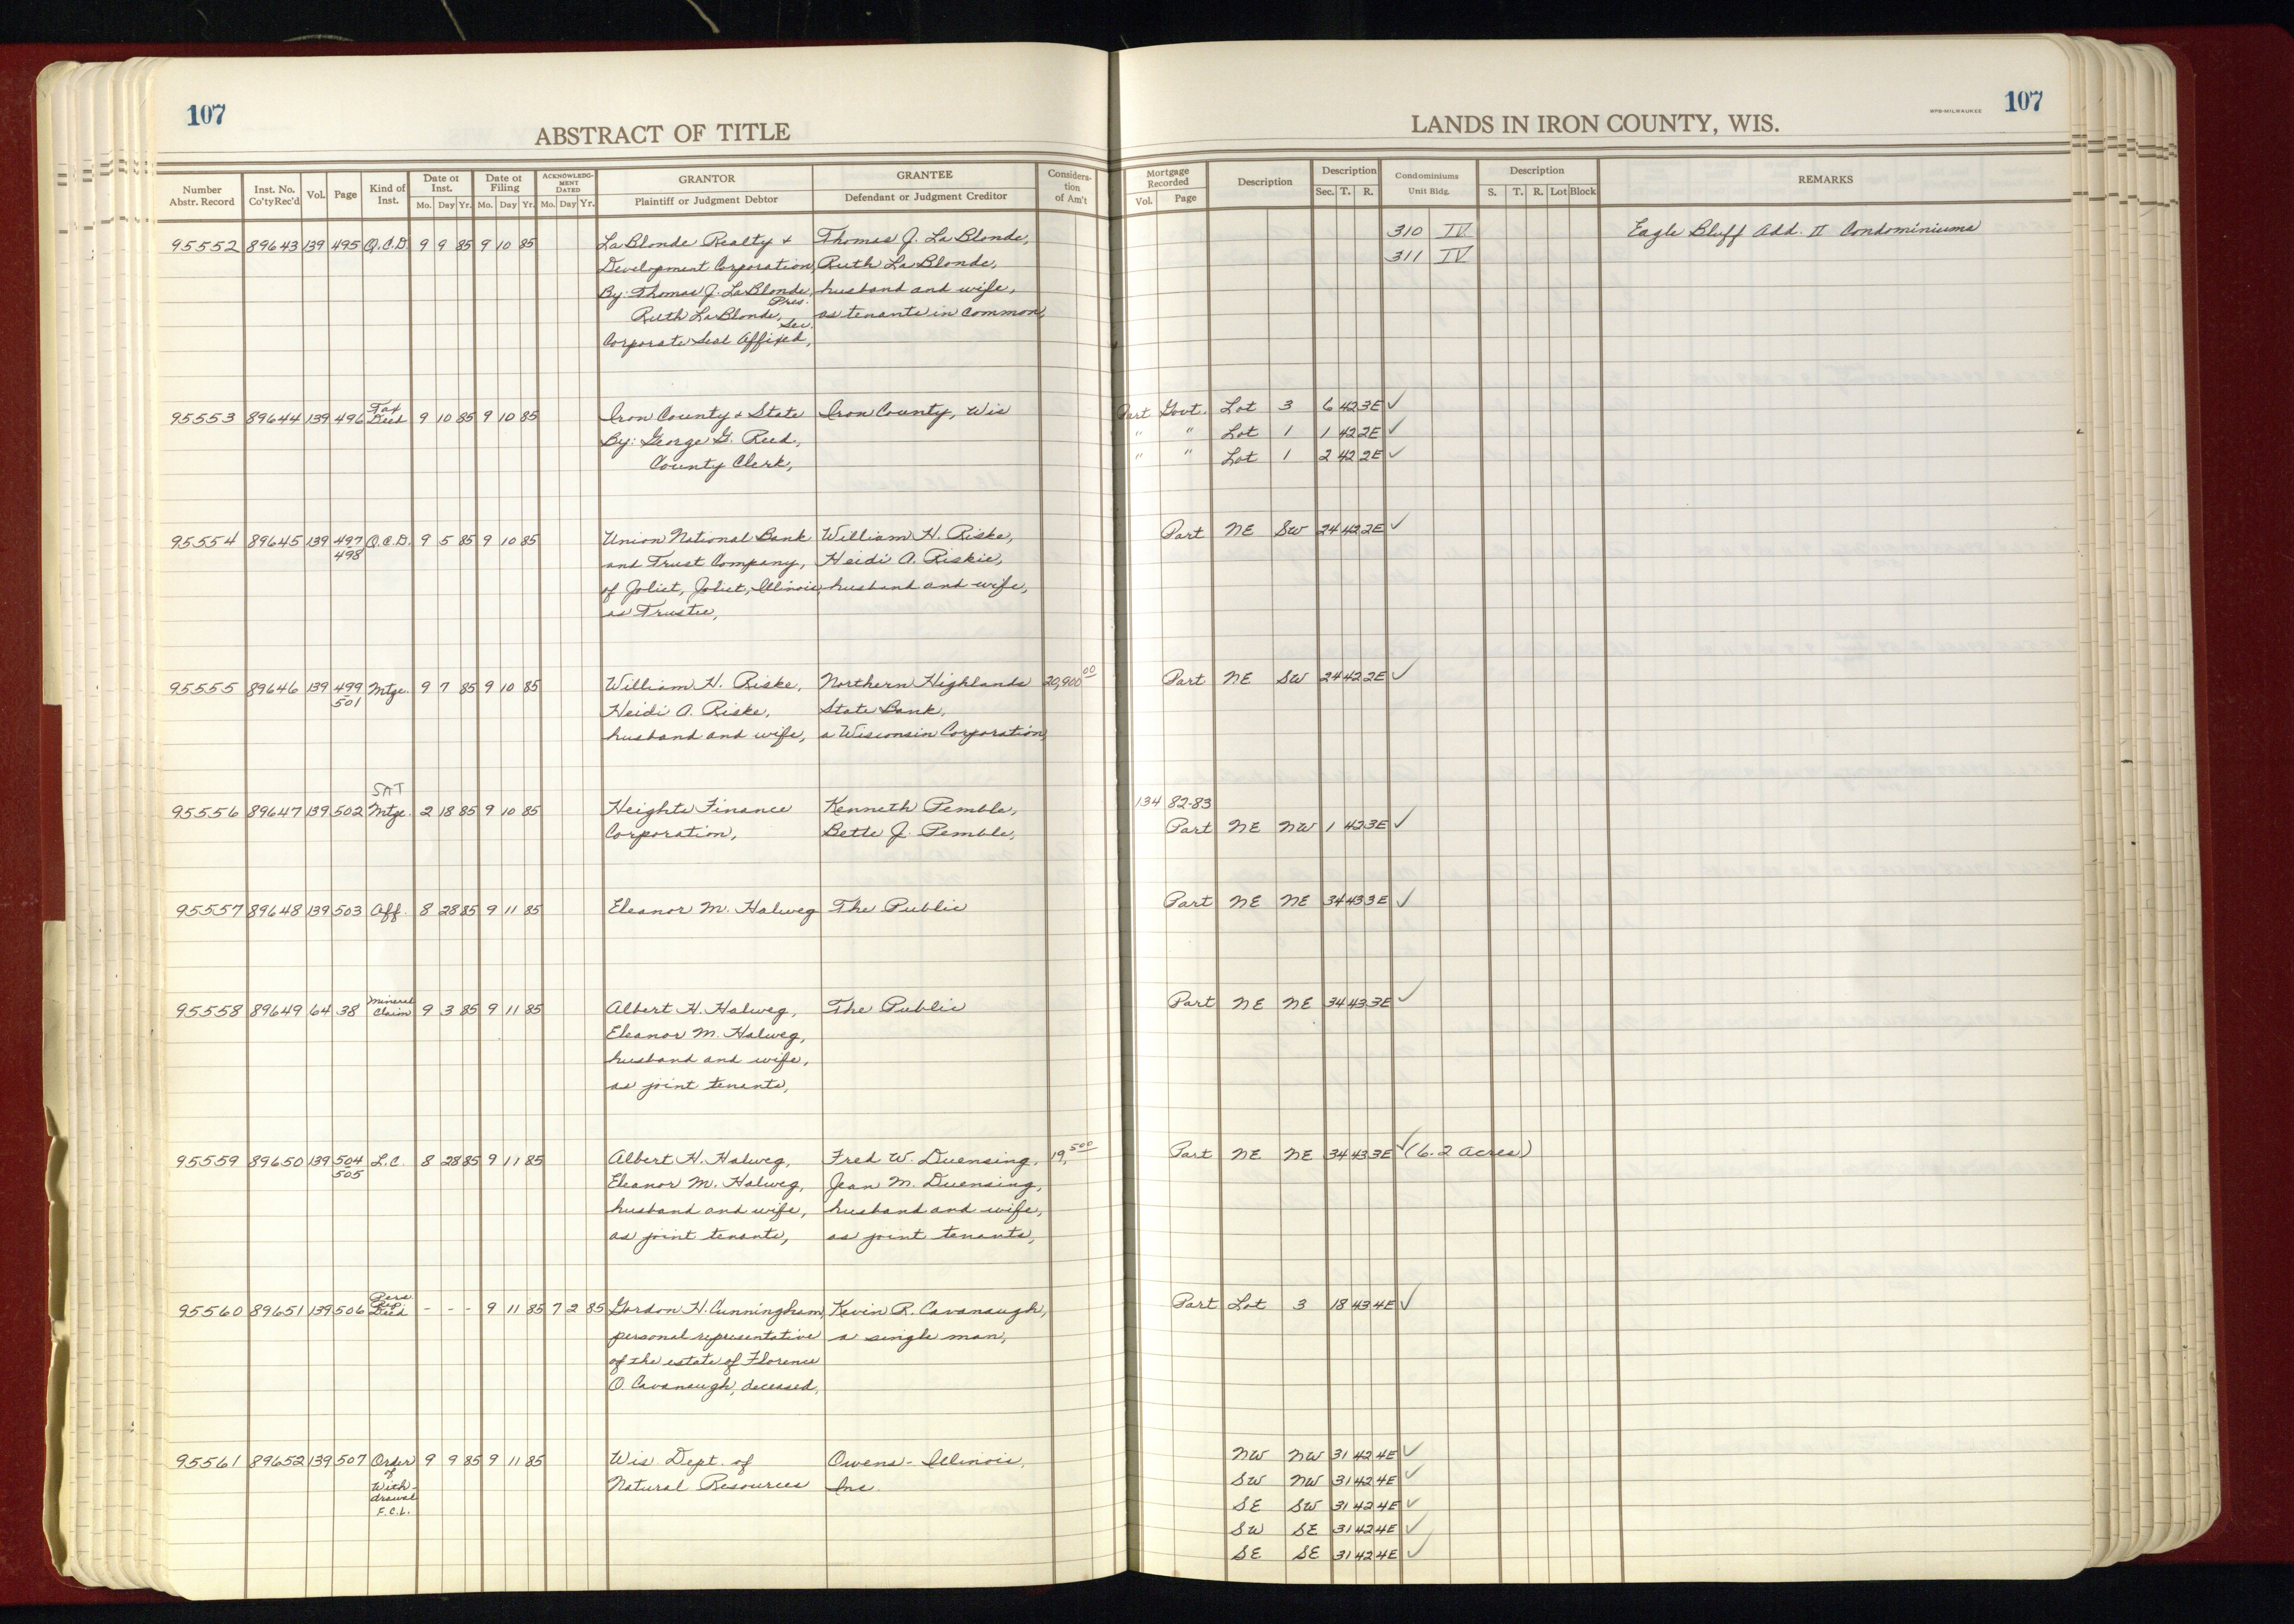 107
ABSTRACT OF TITLE
LANDS IN IRON COUNTY, WIS.
WPB-MILWAUKEE
107
Number Abstr. Record
Inst. No. Co'ty Rec'd
Vol.
Page
Kind of Inst.
Date of Inst. Mo. Day Yr.
Date of Filing Mo. Day Yr.
ACKNOWLEDG-MENT DATED Mo. Day Yr.
GRANTOR Plaintiff or Judgment Debtor
GRANTEE Defendant or Judgment Creditor
Considera-tion of Am't
Mortgage Recorded Vol. Page
Description
Description Sec. T. R.
Condominiums Unit Bldg.
Description S. T. R. Lot Block
REMARKS
95552 89643 139 495 Q.C.D. 9 9 85 9 10 85 LaBlonde Realty & Thomas J. LaBlonde, 310 IV Eagle Bluff Add. II Condominiums
Development Corporation, Ruth LaBlonde, 311 IV
By: Thomas J. LaBlonde, Pres. husband and wife,
Ruth LaBlonde, Sec. as tenants in common,
Corporate Seal Affixed,
95553 89644 139 496 Tax Deed 9 10 85 9 10 85 Iron County & State Iron County, Wis Part Govt. Lot 3 6 42 3E ✓
By: George G. Reed, " " Lot 1 1 42 2E ✓
County Clerk, " " Lot 1 2 42 2E ✓
95554 89645 139 497 498 Q.C.D. 9 5 85 9 10 85 Union National Bank William H. Riske, Part NE SW 24 42 2E ✓
and Trust Company, Heidi A. Riskie,
of Joliet, Joliet, Illinois, husband and wife,
as Trustee,
95555 89646 139 499 501 Mtge. 9 7 85 9 10 85 William H. Riske, Northern Highlands 20,900 00 Part NE SW 24 42 2E ✓
Heidi A. Riske, State Bank,
husband and wife, a Wisconsin Corporation,
SAT
95556 89647 139 502 Mtge. 2 18 85 9 10 85 Heights Finance Kenneth Pemble, 134 82-83
Corporation, Bette J. Pemble, Part NE NW 1 42 3E ✓
95557 89648 139 503 Aff. 8 28 85 9 11 85 Eleanor M. Halweg The Public Part NE NE 34 43 3E ✓
95558 89649 64 38 Mineral Claim 9 3 85 9 11 85 Albert H. Halweg, The Public Part NE NE 34 43 3E ✓
Eleanor M. Halweg,
husband and wife,
as joint tenants,
95559 89650 139 504 505 L.C. 8 28 85 9 11 85 Albert H. Halweg, Fred W. Duensing, 19,500 Part NE NE 34 43 3E ✓ (6.2 acres)
Eleanor M. Halweg, Jean M. Duensing,
husband and wife, husband and wife,
as joint tenants, as joint tenants,
95560 89651 139 506 Pers. Rep. Deed - - - 9 11 85 7 2 85 Gordon H. Cunningham, Kevin R. Cavanaugh, Part Lot 3 18 43 4E ✓
personal representative a single man,
of the estate of Florence
O. Cavanaugh, deceased,
95561 89652 139 507 Order 9 9 85 9 11 85 Wis Dept. of Owens-Illinois, NW NW 31 42 4E ✓
of Natural Resources Inc. SW NW 31 42 4E ✓
With- SE SW 31 42 4E ✓
drawal SW SE 31 42 4E ✓
F.C.L. SE SE 31 42 4E ✓